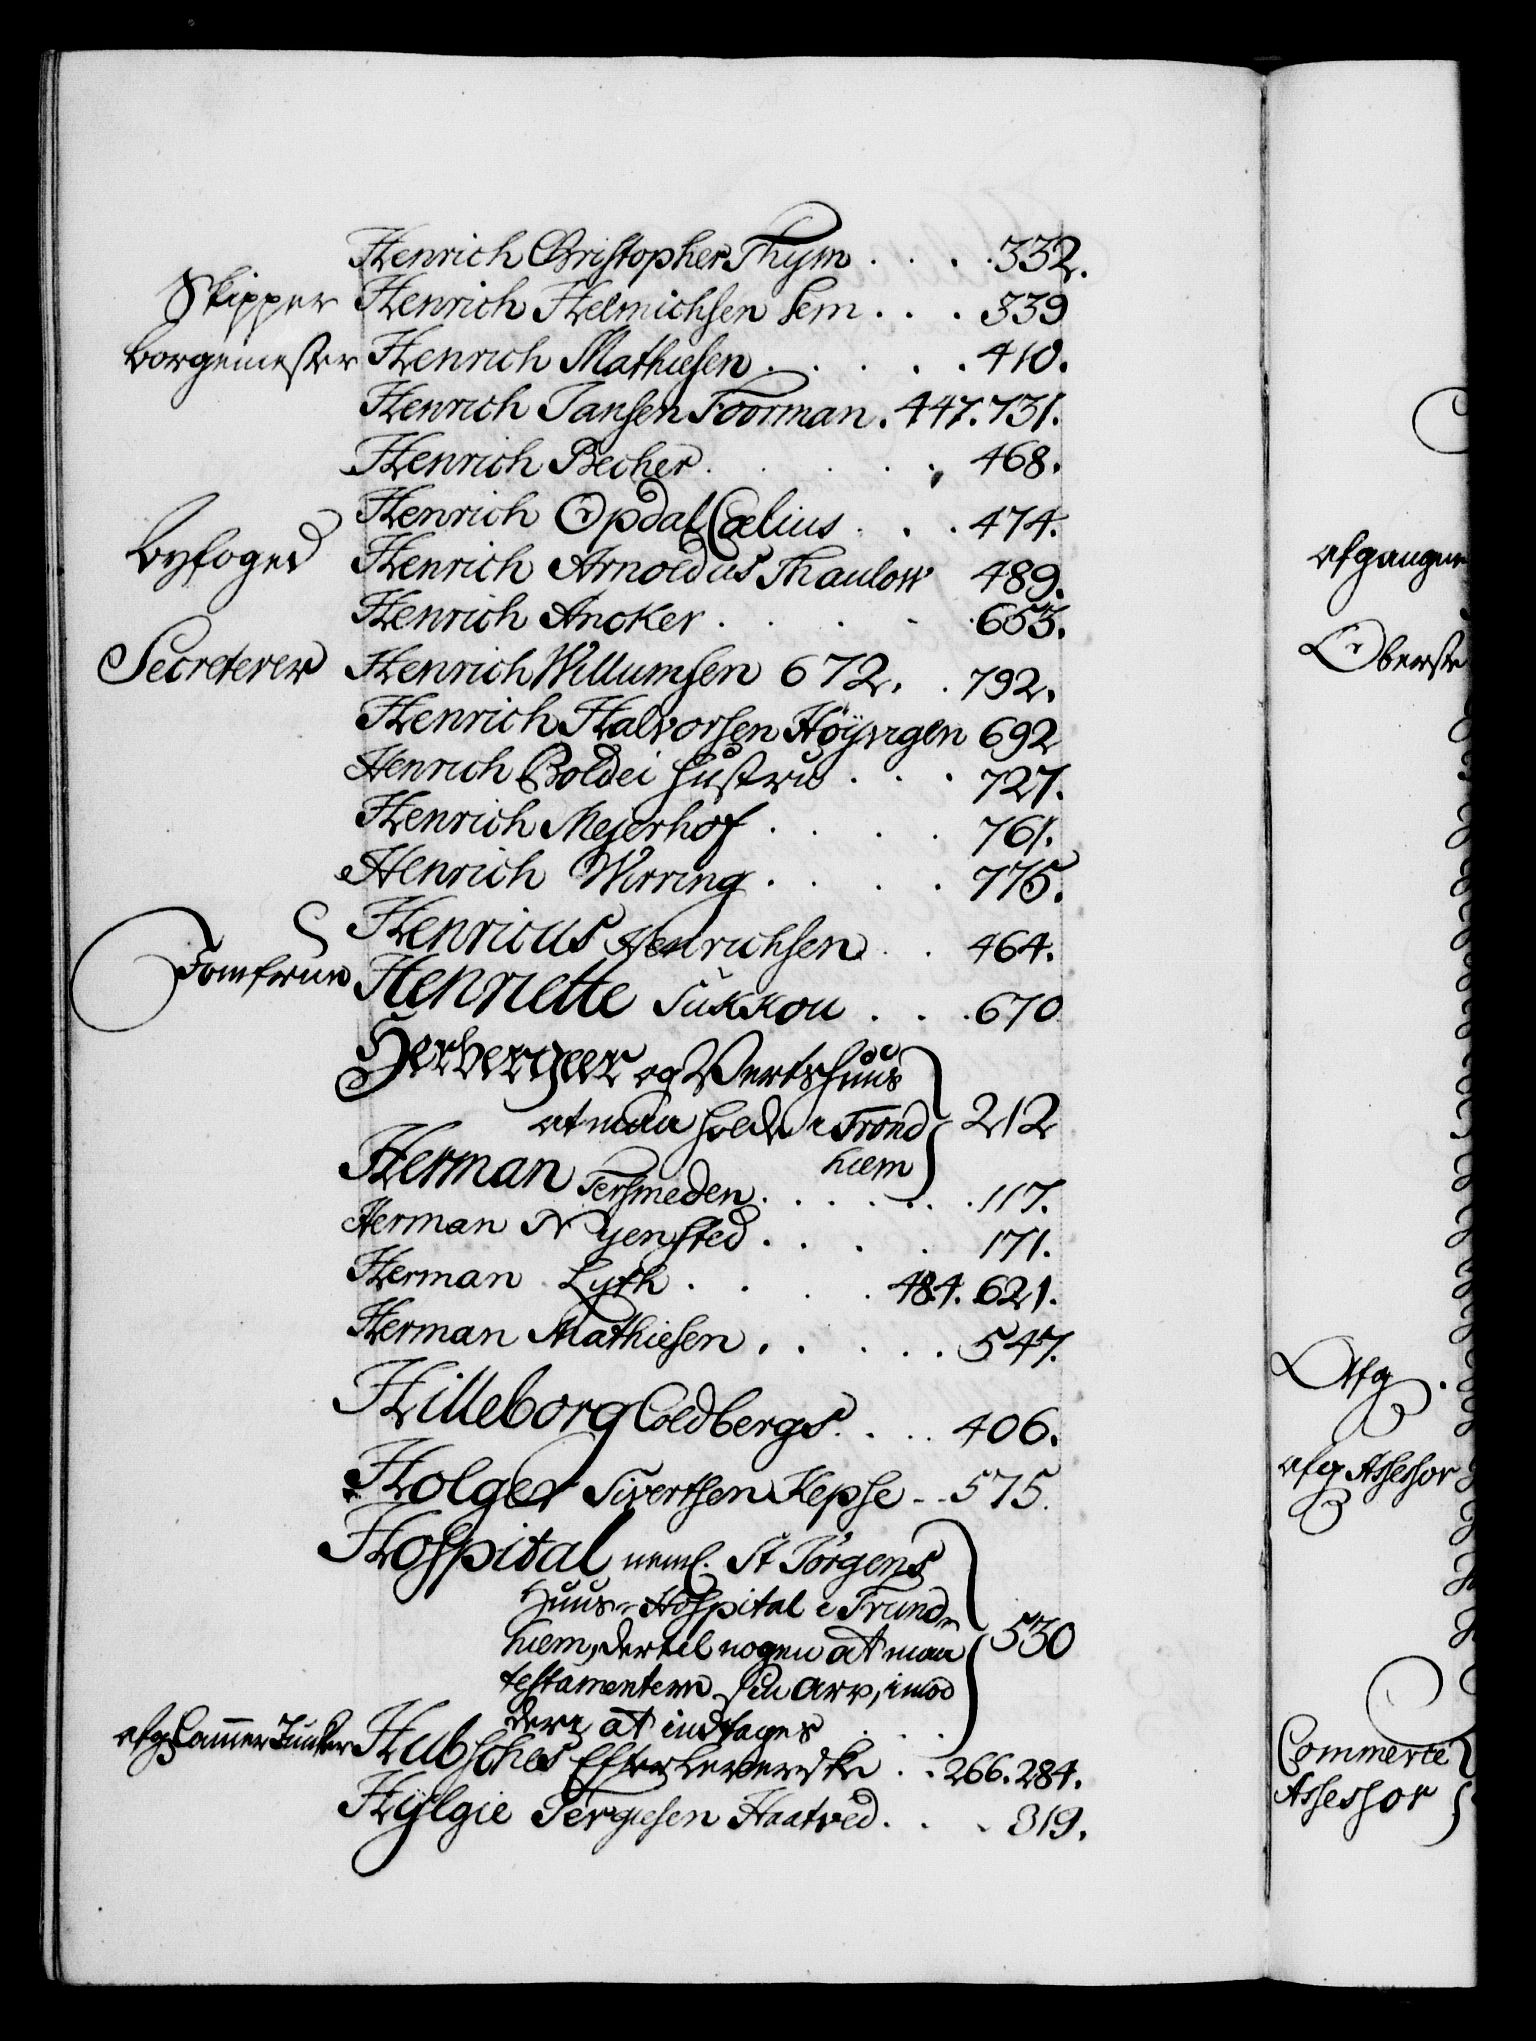 Henrich Christopher Thym . . . . 332.
Skipper Henrich Helmichsen Sem . . . 339
Borgemester Henrich Mathiesen . . . . . 410.
Henrich Jansen Foorman . 447. 731.
Henrich Becher . . . . . 468.
Henrich Opdal Coelius . . . 474.
Byfoged Henrich Arnoldus Thaulow 489.
Henrich Ancker . . . . . 653.
Secreterer Henrich Willumsen 672. . 792.
Henrich Halvorsen Höyvigen 692
Henrich Boldei Hustrue . . . 727.
Henrich Mejerhof . . . . 761.
Henrich Wirring . . . . 775.
Henricus Henrichsen . . 464.
Jomfrue Henriette Sukkou . . . 670
Herbergeer og Vertshuus
at maa holde i Trond
hiem 212
Herman Tersmeden . . . . . . 117.
Herman Nyensted . . . . 171.
Herman Lyth . . . . 484. 621.
Herman Mathiesen . . . . . . 547.
Hilleborg Coldbergs . . . . 406.
Holger Sivertsen Hepse . . 575.
Hospital neml. St Jörgens
Huus-Hospital i Trund-
hiem, dertil nogen at maa 530
testamentere sin arv, imod
der at indtages . . .
afg Cammer Junker Hubsches Efterleverske . . 266. 284.
Hylgie Tergiesen Haatved . . . 319.
afgangne
Oberste
Afg.
afg Assessor
Commerce
Assessor